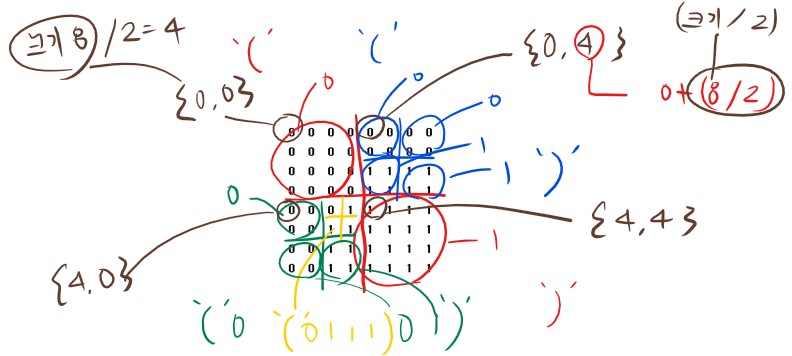 (크기/2)
크기 8 /2=4
'('
'('
{0, 4}
0+(8/2)
{0,0}
0
0
0
0 0 0 0 0 0 0 0
0 0 0 0 0 0 0 0
0 0 0 0 1 1 1 1
0 0 0 0 1 1 1 1
0 0 0 1 1 1 1 1
0 0 1 1 1 1 1 1
0 0 1 1 1 1 1 1
0 0 1 1 1 1 1 1
1
1 ')'
0
{4,4}
1
{4,0}
'(' 0 '(0111) 0 1 ')'
')'